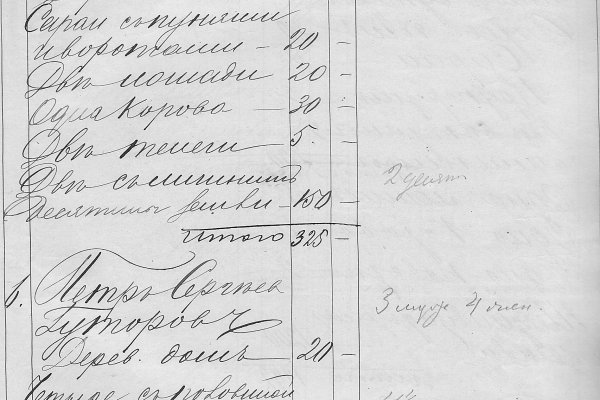 Сараи съ пунями
и воротами — 20 —
Двѣ лошади 20 —
Одна корова — 30 —
Двѣ телеги 5. —
Двѣ съ
Десятины земли — 150 — 2 десят
Итого 325 —
6. Петръ Сергѣев
3 муж 4 жен.
Гуторовъ
Дерев. домъ — 20 —
Четыре съ